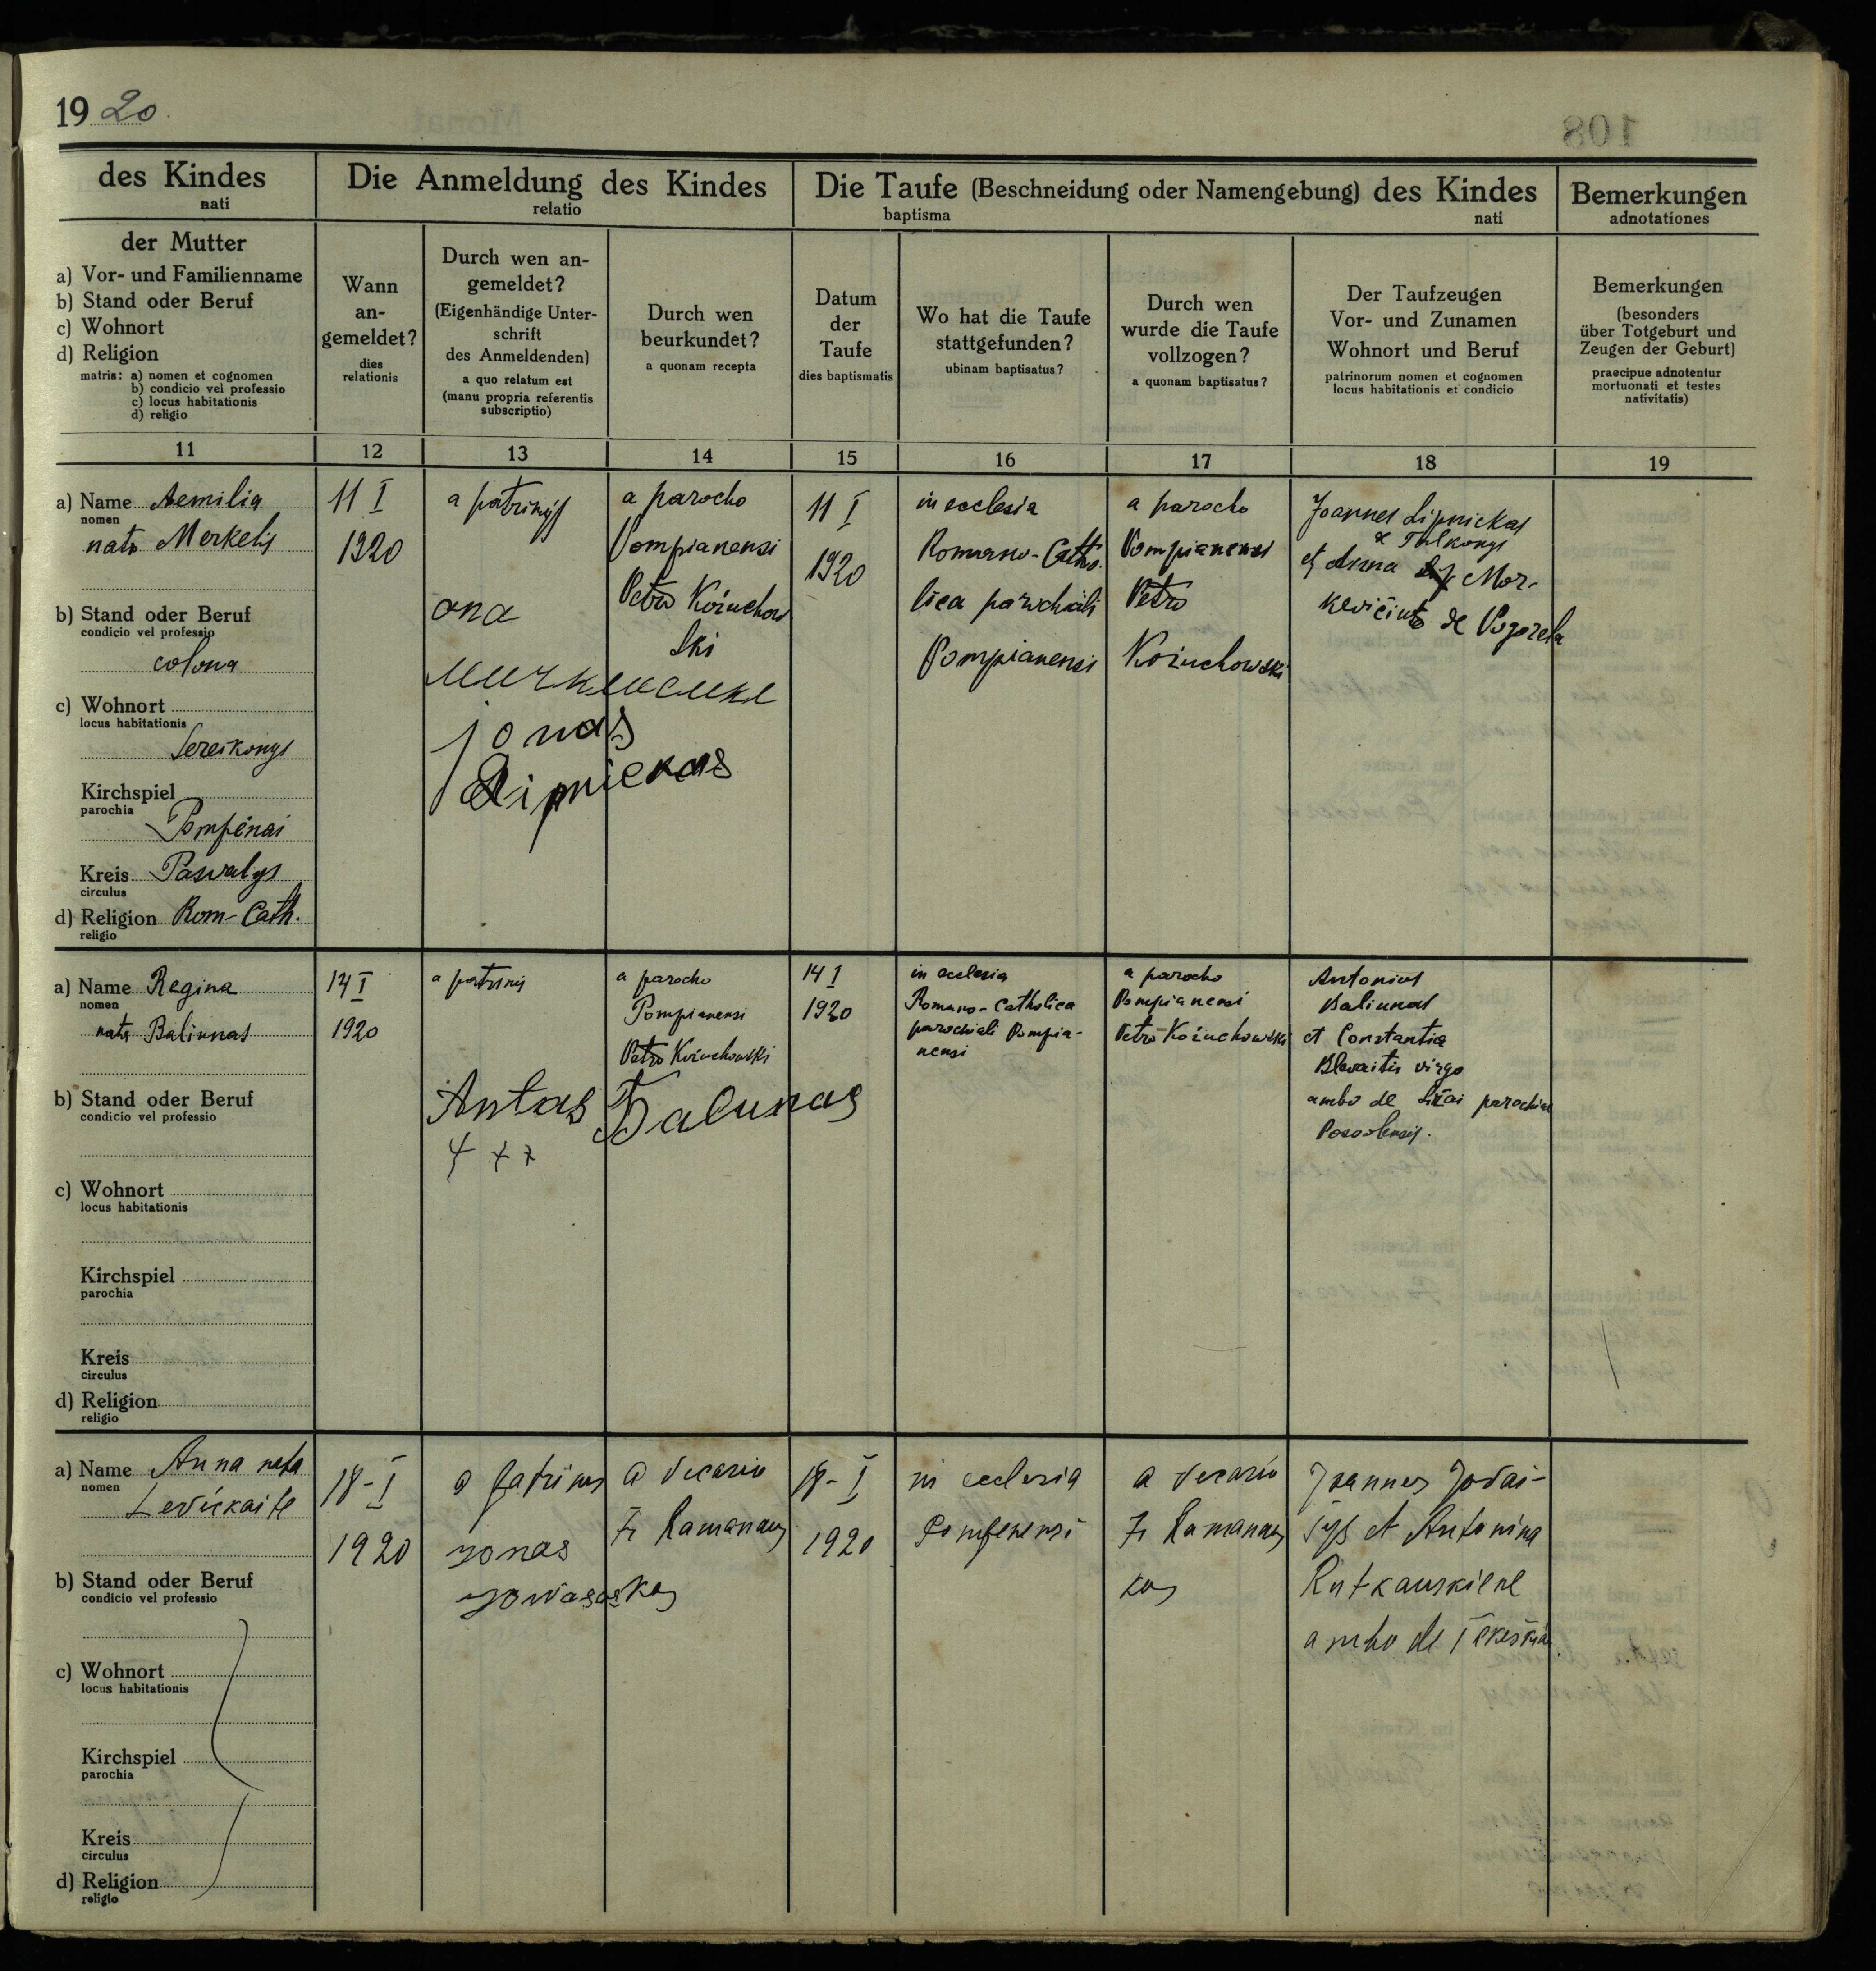 19 20
des Kindes
nati
Die Anmeldung des Kindes
relatio
Die Taufe (Beschneidung oder Namengebung) des Kindes
baptisma nati
Bemerkungen
adnotationes
der Mutter
a) Vor- und Familienname
b) Stand oder Beruf
c) Wohnort
d) Religion
matris: a) nomen et cognomen
b) condicio vel professio
c) locus habitationis
d) religio
Wann
an-
gemeldet?
dies
relationis
Durch wen an-
gemeldet?
(Eigenhändige Unter-
schrift
des Anmeldenden)
a quo relatum est
(manu propria referentis
subscriptio)
Durch wen
beurkundet?
a quonam recepta
Datum
der
Taufe
dies baptismatis
Wo hat die Taufe
stattgefunden?
ubinam baptisatus?
Durch wen
wurde die Taufe
vollzogen?
a quonam baptisatus?
Der Taufzeugen
Vor- und Zunamen
Wohnort und Beruf
patrinorum nomen et cognomen
locus habitationis et condicio
Bemerkungen
(besonders
über Totgeburt und
Zeugen der Geburt)
praecipue adnotentur
mortuonati et testes
nativitatis)
11 12 13 14 15 16 17 18 19
a) Name Aemilia
nomen
nata Merkelis
b) Stand oder Beruf
condicio vel professio
colona
c) Wohnort
locus habitationis
Sereikonys
Kirchspiel
parochia
Pompėnai
Kreis Pasvalys
circulus
d) Religion Rom-Cath.
religio
11 I
1920
a patrinijs
ona
jonas
Lipnickas
a parocho
Pompianensi
Petro Kożuchow
ski
11 I
1920
in ecclesia
Romano-Catho-
lica parochiali
Pompianensi
a parocho
Pompianensi
Petro
Kożuchowski
Joannes Lipnickas
de Talkonys
et Anna Mor-
kevičiute de Pogorela
a) Name Regina
nomen
nata Baliunas
b) Stand oder Beruf
condicio vel professio
c) Wohnort
locus habitationis
Kirchspiel
parochia
Kreis
circulus
d) Religion
religio
14 I
1920
a patrinis
Antas Balunas
+ + +
a parocho
Pompianensi
Petro Kożuchowski
14 I
1920
in ecclesia
Romano-Catholica
parochiali Pompia-
nensi
a parocho
Pompianensi
Petro Kożuchowski
Antonius
Baliunas
et Constantia
Blevaitis virgo
ambo de parochiae
a) Name Anna nata
nomen
Levickaite
b) Stand oder Beruf
condicio vel professio
c) Wohnort
locus habitationis
Kirchspiel
parochia
Kreis
circulus
d) Religion
religio
18-I
1920
a patrinis
Jonas
a vicario
Fr Ramanaus
18-I
1920
in ecclesia
Pompenensi
a vicario
Fr Ramanaus
kas
Joannes Jovai-
šys et Antonina
Rutkauskiene
ambo de